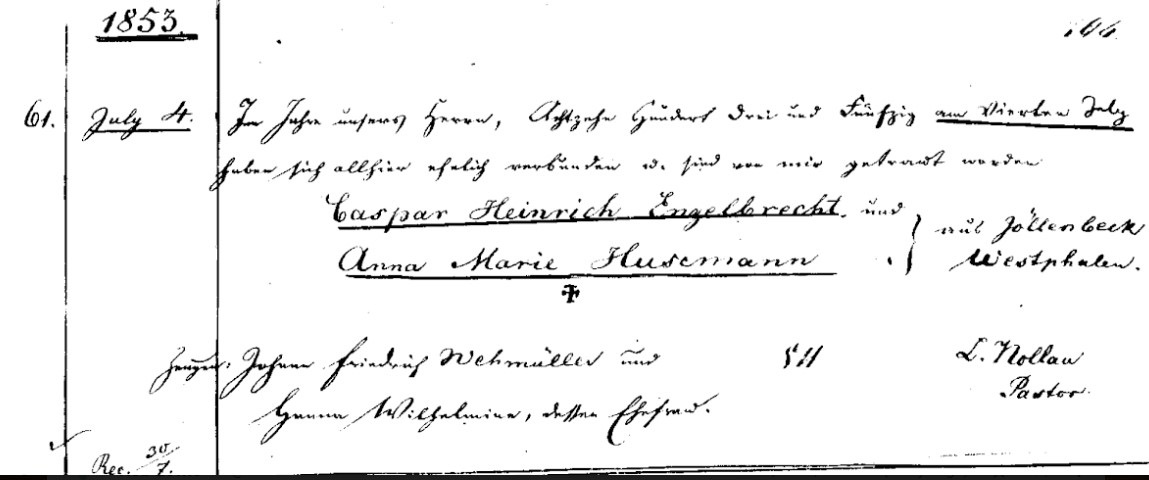 1853.
61. July 4. Im Jahre unsers Herrn, Achtzehn Hundert Drei und Fünfzig am Vierten July
haben sich allhier ehelich verbunden u. sind von mir getraut worden
Caspar Heinrich Engelbrecht. und
Anna Marie Husemann } aus Jöllenbeck
Westphalen.
Zeugen: Johann Friedrich Wehmüller und L. Nollau
Pastor.
Hanna Wilhelmine, dessen Ehefrau.
Rec. 30/7.